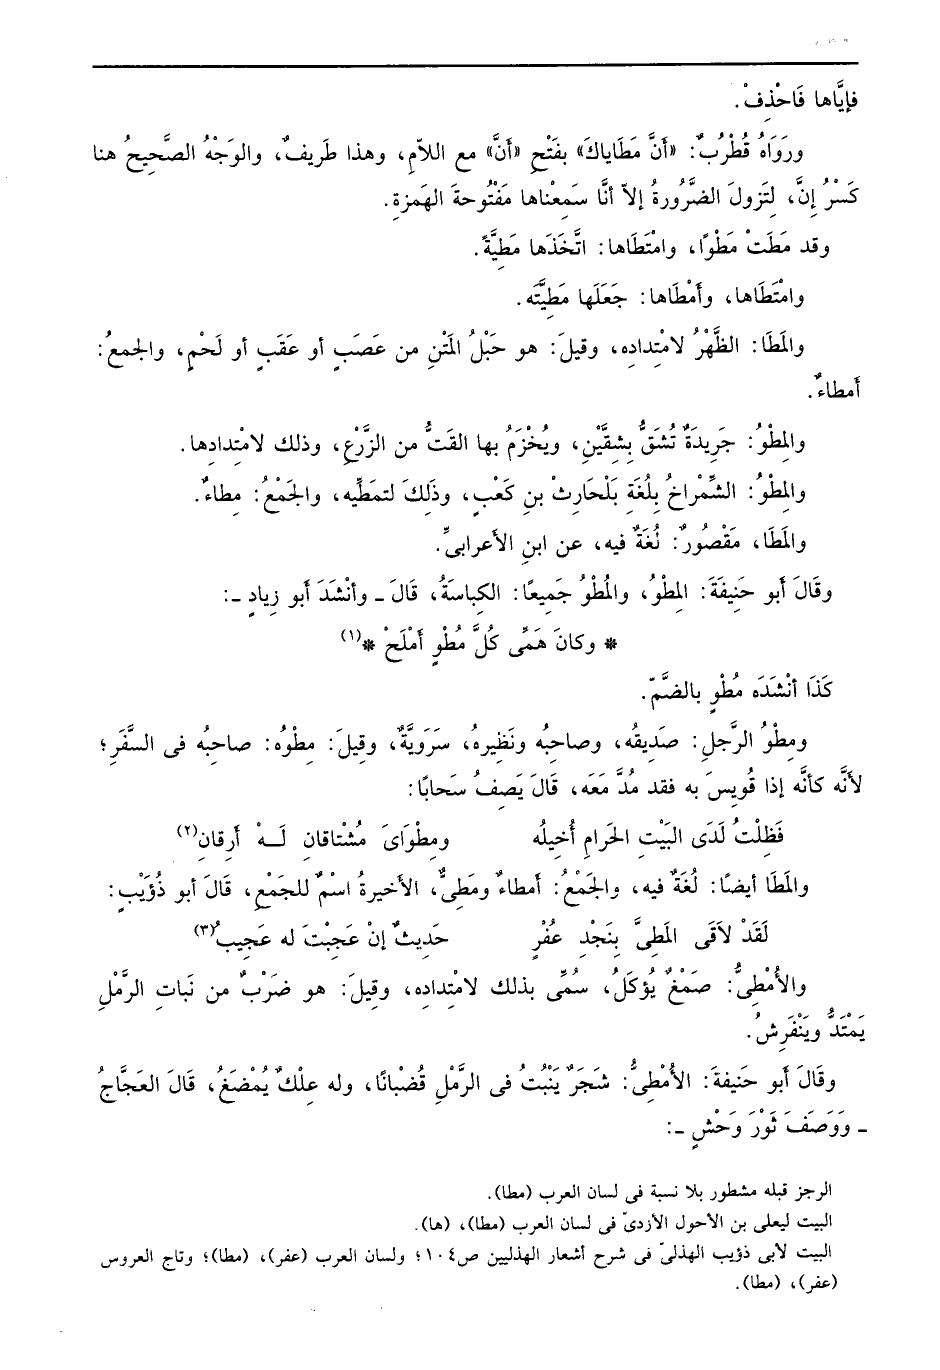 فإيَّاها فَاحْذِفْ.
ورَوَاهُ قُطْرُبٌ: «أَنَّ مَطَاياكَ» بفَتْحِ «أَن» مع اللاّمِ، وهذا طَرِيفٌ، والوَجْهُ الصَّحِيحُ هنا
كَسْرُ إنَّ، لتَزولَ الضَّرُورةُ إلاّ أنَّا سَمِعْناها مَفْتُوحةَ الهَمزةِ.
وقد مَطَتْ مَطْوًا، وامْتَطَاها: اتَّخَذَها مَطِيَّةً.
وامْتَطَاها، وأَمْطَاها: جَعَلَها مَطِيَّتَه.
والمَطَا: الظَّهْرُ لامْتِدادِه، وقِيلَ: هو حَبْلُ المَتْنِ من عَصَبٍ أو عَقَبٍ أو لَحْمٍ، والجمعُ:
أمطاءٌ.
والمِطْوُ: جَرِيدَةٌ تُشَقُّ بشِقَّيْنِ، ويُحْزَمُ بها القَتُّ من الزَّرْعِ، وذلك لامْتِدادِها.
والمِطْوُ: الشِّمْراخُ بِلُغَةِ بَلْحَارِثْ بنِ كَعْبٍ، وذَلِكَ لتمَطِّيه، والجَمْعُ: مِطاءٌ.
والمَطَا، مَقْصُورٌ: لُغَةٌ فيه، عن ابنِ الأَعرابىِّ.
وقَالَ أبو حَنِيفَةَ: المِطْوُ، والمُطْوُ جَمِيعًا: الكِباسَةُ، قَالَ ـ وأنْشَدَ أبو زِيادٍ ـ:
* وكانَ هَمِّى كُلَّ مُطْوٍ أَمْلَحْ *(١)
كَذَا أنْشَدَه مُطْوٍ بالضَّمّ.
ومِطْوُ الرَّجلِ: صَدِيقُه، وصاحِبُه ونَظِيرهُ، سَرَوِيَّةٌ، وقِيلَ: مِطْوُه: صاحِبُه فى السَّفَرِ؛
لأنَّه كأنَّه إذا قُويِسَ به فقد مُدَّ مَعَه، قَالَ يَصِفُ سَحابًا:
فَظِلْتُ لَدَى البَيْتِ الحَرامِ أُخِيلُه ومِطْوَاىَ مُشْتاقانِ لَـهْ أَرِقانِ(٢)
والمَطَا أيضًا: لُغَةٌ فيه، والجَمْعُ: أمطاءٌ ومَطِىٌّ، الأخيرةُ اسْمٌ للجَمْعِ، قَالَ أبو ذُؤَيْبٍ:
لَقَدْ لاَقَى المَطِىَّ بِنَجْدِ عُفْرٍ حَدِيثٌ إنْ عَجِبْتَ له عَجِيبُ(٣)
والأُمْطِىُّ: صَمْغٌ يُؤكَلُ، سُمِّى بذلك لامْتِدادِه، وقِيلَ: هو ضَرْبٌ من نَباتِ الرَّمْلِ
يَمْتَدُّ ويَنْفَرِشُ.
وقَالَ أبو حَنيفةَ: الأُمْطِىُّ: شَجَرٌ يَنْبُتُ فى الرَّمْلِ قُضْبانًا، وله عِلْكٌ يُمْضَغُ، قَالَ العَجَّاجُ
ـ وَوَصَفَ ثَوْرَ وَحْشٍ ـ:
الرجز قبله مشطور بلا نسبة فى لسان العرب (مطا).
البيت ليعلى بن الأحول الأزدىّ فى لسان العرب (مطا)، (ها).
البيت لأبى ذؤيب الهذلىّ فى شرح أشعار الهذليين ص١٠٤؛ ولسان العرب (عفر)، (مطا)؛ وتاج العروس
(عفر)، (مطا).